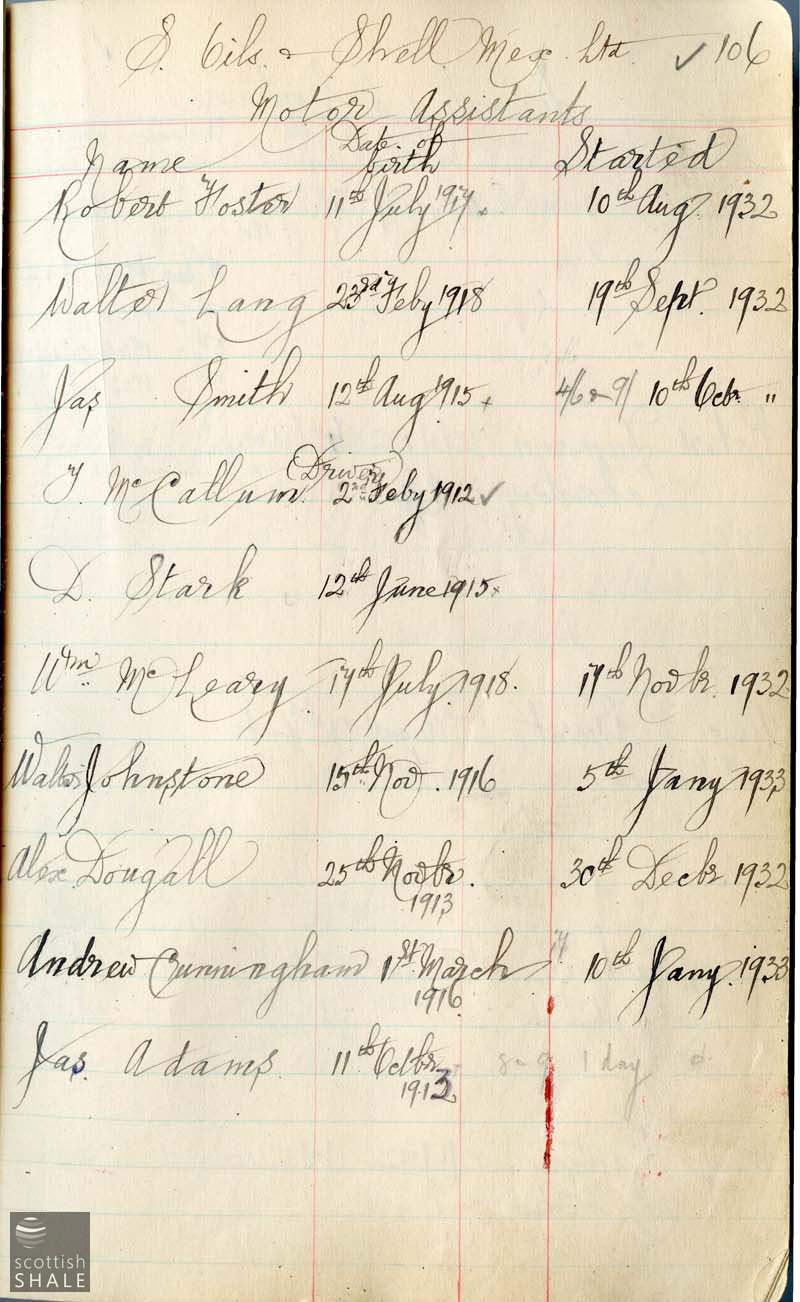 S. Oils. & Shell Mex Ltd ✓ 106
Motor Assistants
Name Date of birth Started
Robert Foster 11th July 1917 × 10th Aug. 1932
Walter Lang 23rd Feby 1918 19th Sept. 1932
Jas Smith 12th Aug 1915 × 4/6 & 9/ 10th Octr. "
T. McCallum. (Driver) 2nd Feby 1912 ✓
D. Stark 12th June 1915 ×
Wm McLeary 17th July. 1918. 17th Novbr. 1932
Walter Johnstone 15th Nov. 1916 5th Jany 1933
Alex. Dougall 25th Novbr. 1913 30th Decbr 1932
Andrew Cunningham 1st March 1916 10th Jany. 1933
Jas. Adams. 11th Octbr. 1913 1 day
scottish
SHALE